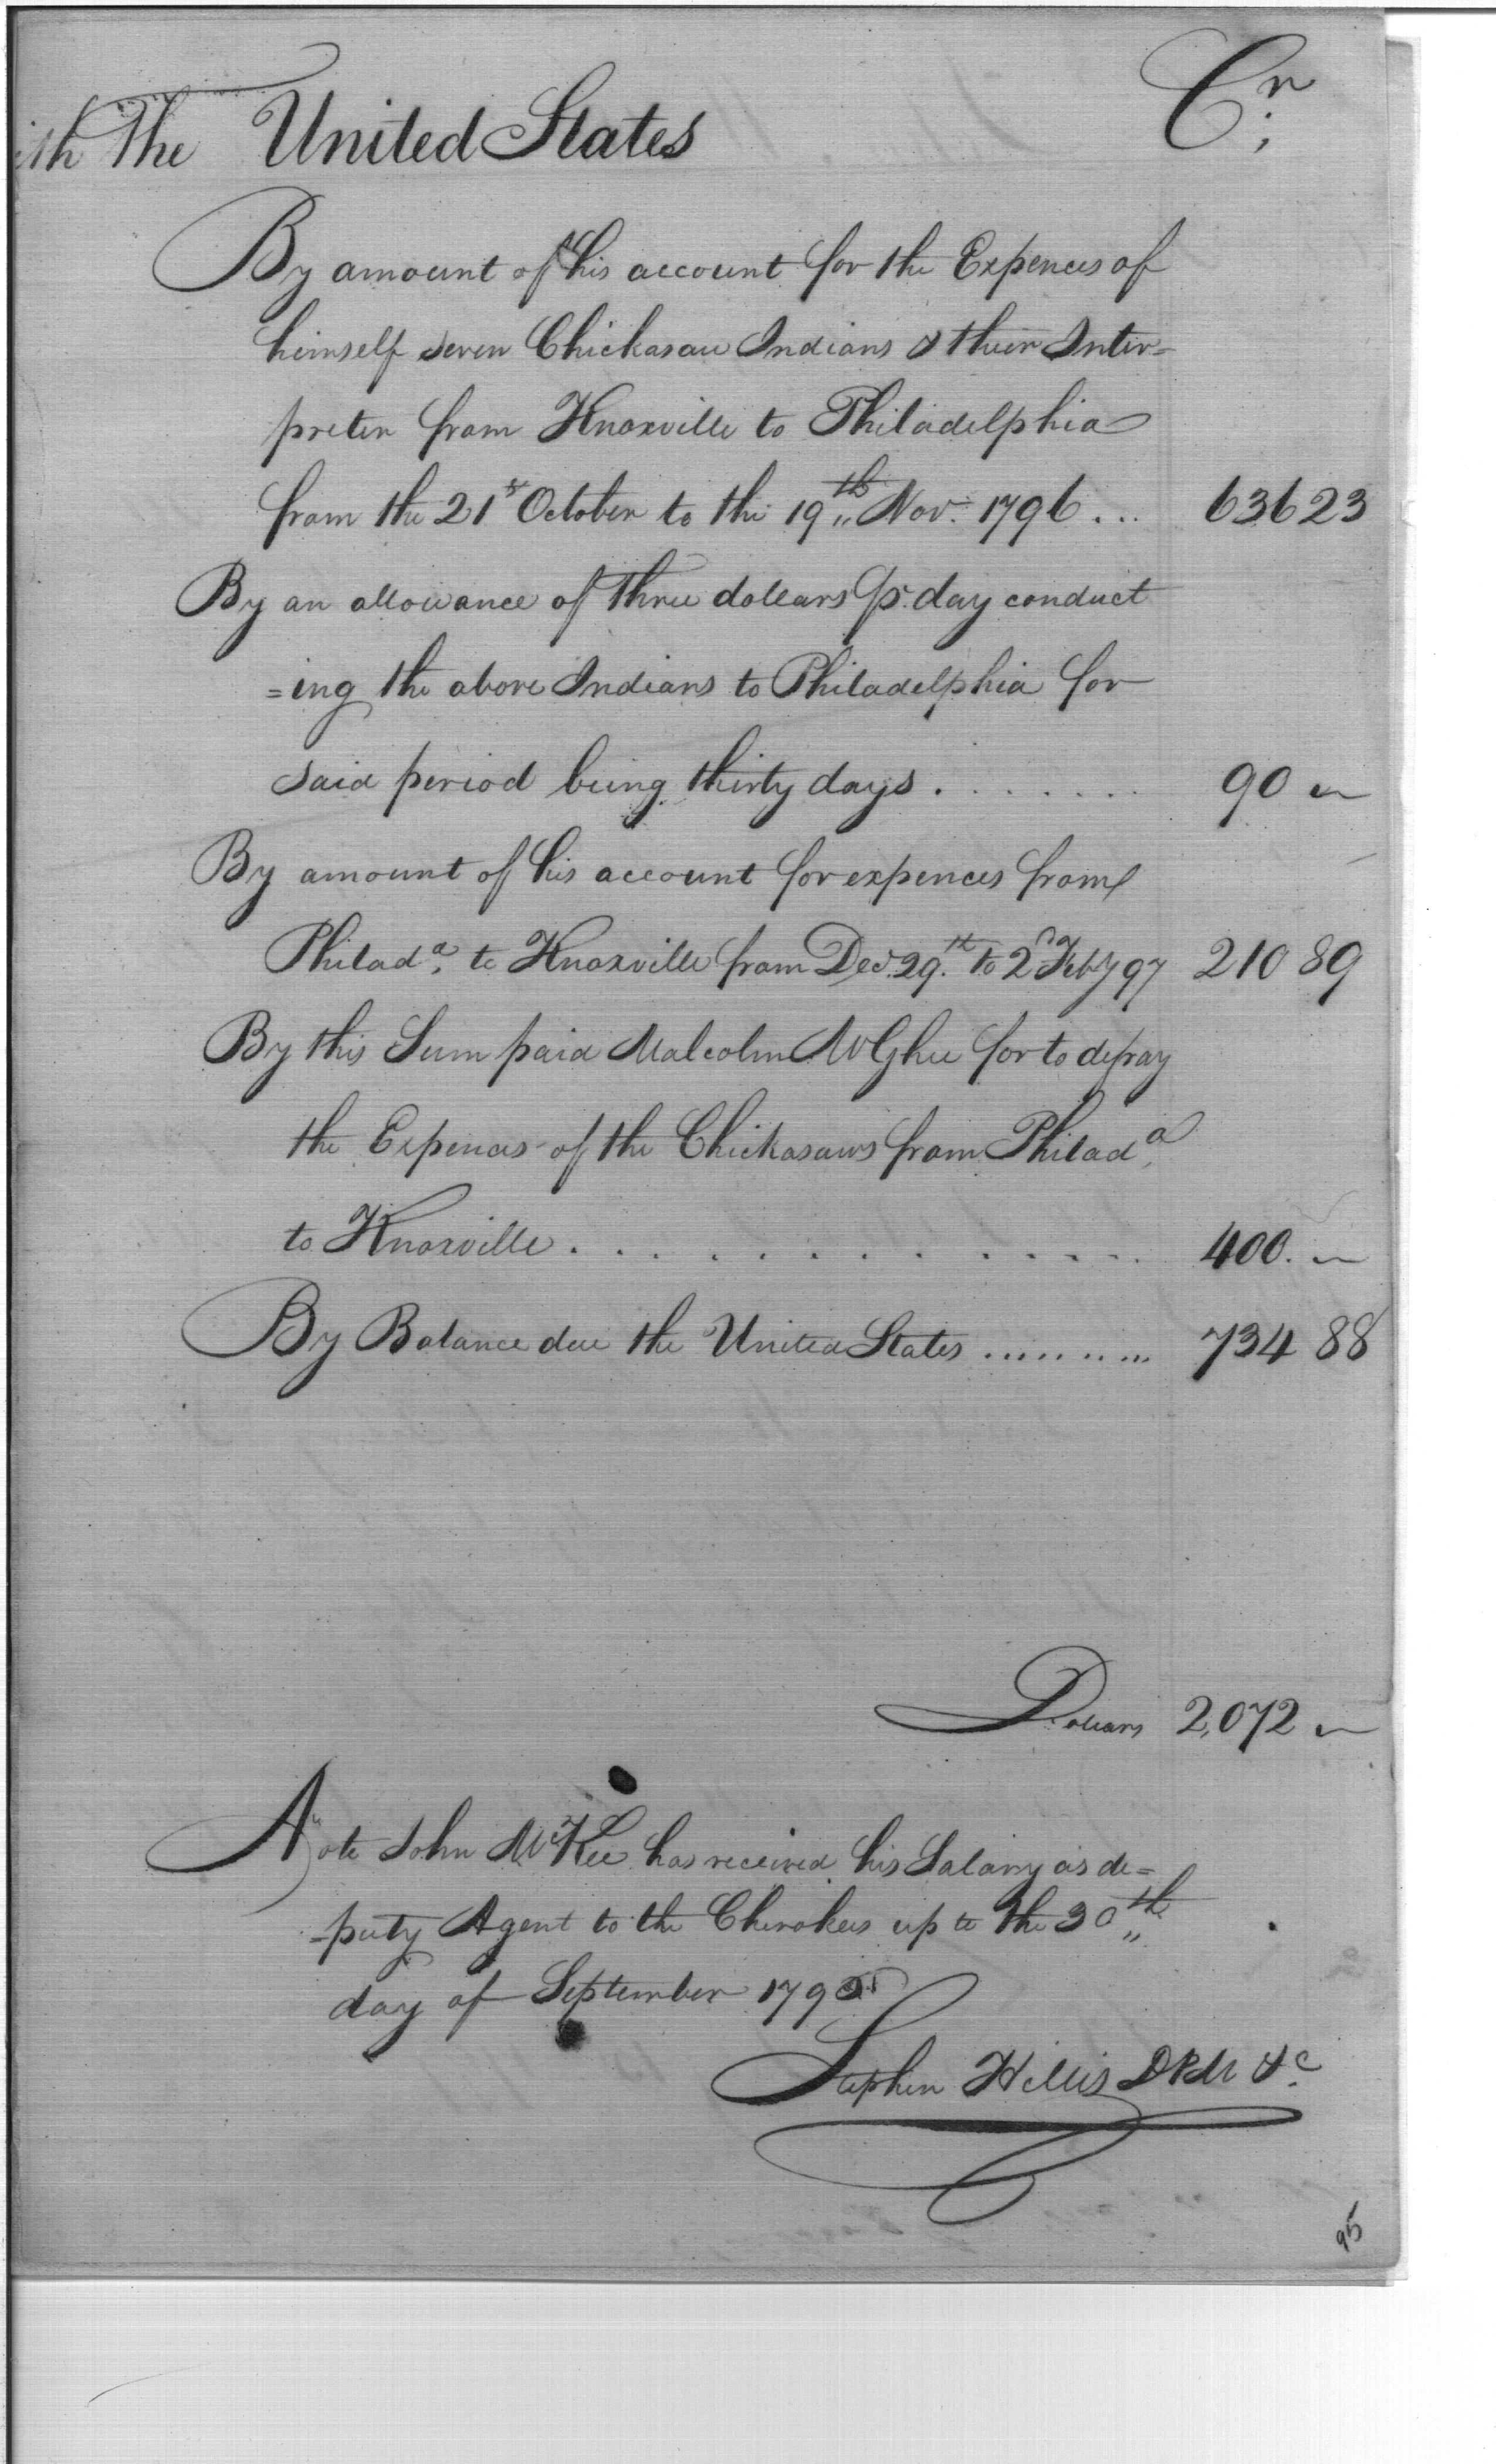 ith the United States Cr;
By amount of his account for the Expences of
himself seven Chickasaw Indians & their Inter=
preter from Knoxville to Philadelphia
from the 21st October to the 19th Nov. 1796 ... 636 23
By an allowance of three dollars pr. day conduct
=ing the above Indians to Philadelphia for
said period being thirty days . . . . . . . 90 –
By amount of his account for expences from
Philada. to Knoxville from Decr. 29th to 2d Feby 97 210 89
By this Sum paid Malcolm McGhee for to defray
the Expences of the Chickasaws from Philada.
to Knoxville . . . . . . . . . . . . . 400. –
By Balance due the United States .......... 734 88
Dollars 2,072 –
Note John McKee has received his Salary as de=
=puty Agent to the Cherokees up to the 30th
day of September
Stephen Hillis DPM &c.
95